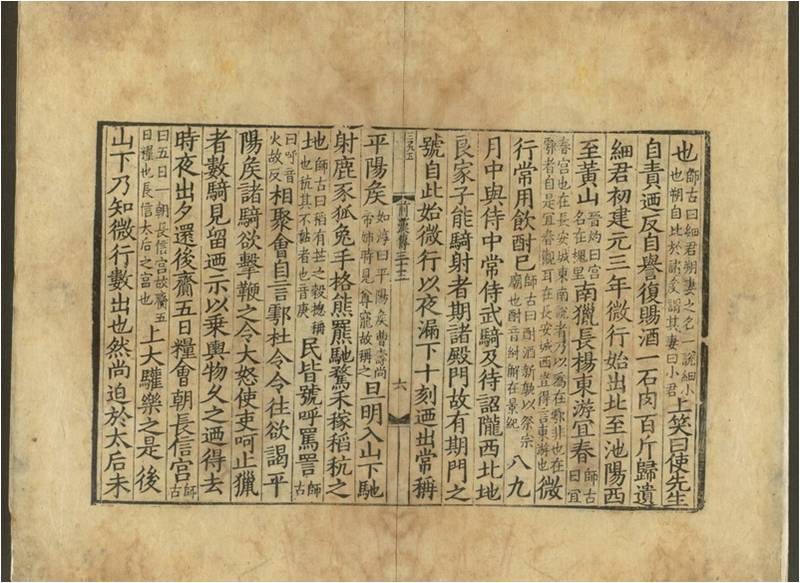 也師古曰細君朔妻之名一說細小也朔自比於諸侯謂其妻曰小君上笑曰使先生
自責迺反自譽復賜酒一石肉百斤歸遺
細君初建元三年微行始出北至池陽西
至黃山晉灼曰宮名在槐里南獵長楊東游宜春師古曰宜
春宮也在長安城東南說者乃以為在鄠非也在鄠者自是宜春觀耳在長安城西豈得言東游也微
行常用飲酎已師古曰酎酒新熟以祭宗廟也酎音紂解在景紀八九
月中與侍中常侍武騎及待詔隴西北地
良家子能騎射者期諸殿門故有期門之
號自此始微行以夜漏下十刻迺出常稱
前漢傳三十五
六
平陽侯如淳曰平陽侯曹壽尚帝姊時見尊寵故稱之旦明入山下馳
射鹿豕狐兔手格熊羆馳騖禾稼稻秔之
地師古曰稻有芒之穀總稱也秔其不黏者也音庚民皆號呼罵詈師古
曰呼音火故反相聚會自言鄠杜令令往欲謁平
陽侯諸騎欲擊鞭之令大怒使吏呵止獵
者數騎見留迺示以乘輿物久之迺得去
時夜出夕還後齎五日糧會朝長信宮師古
曰五日一朝長信宮故齎五日糧也長信太后之宮也上大驩樂之是後
山下乃知微行數出也然尚迫於太后未